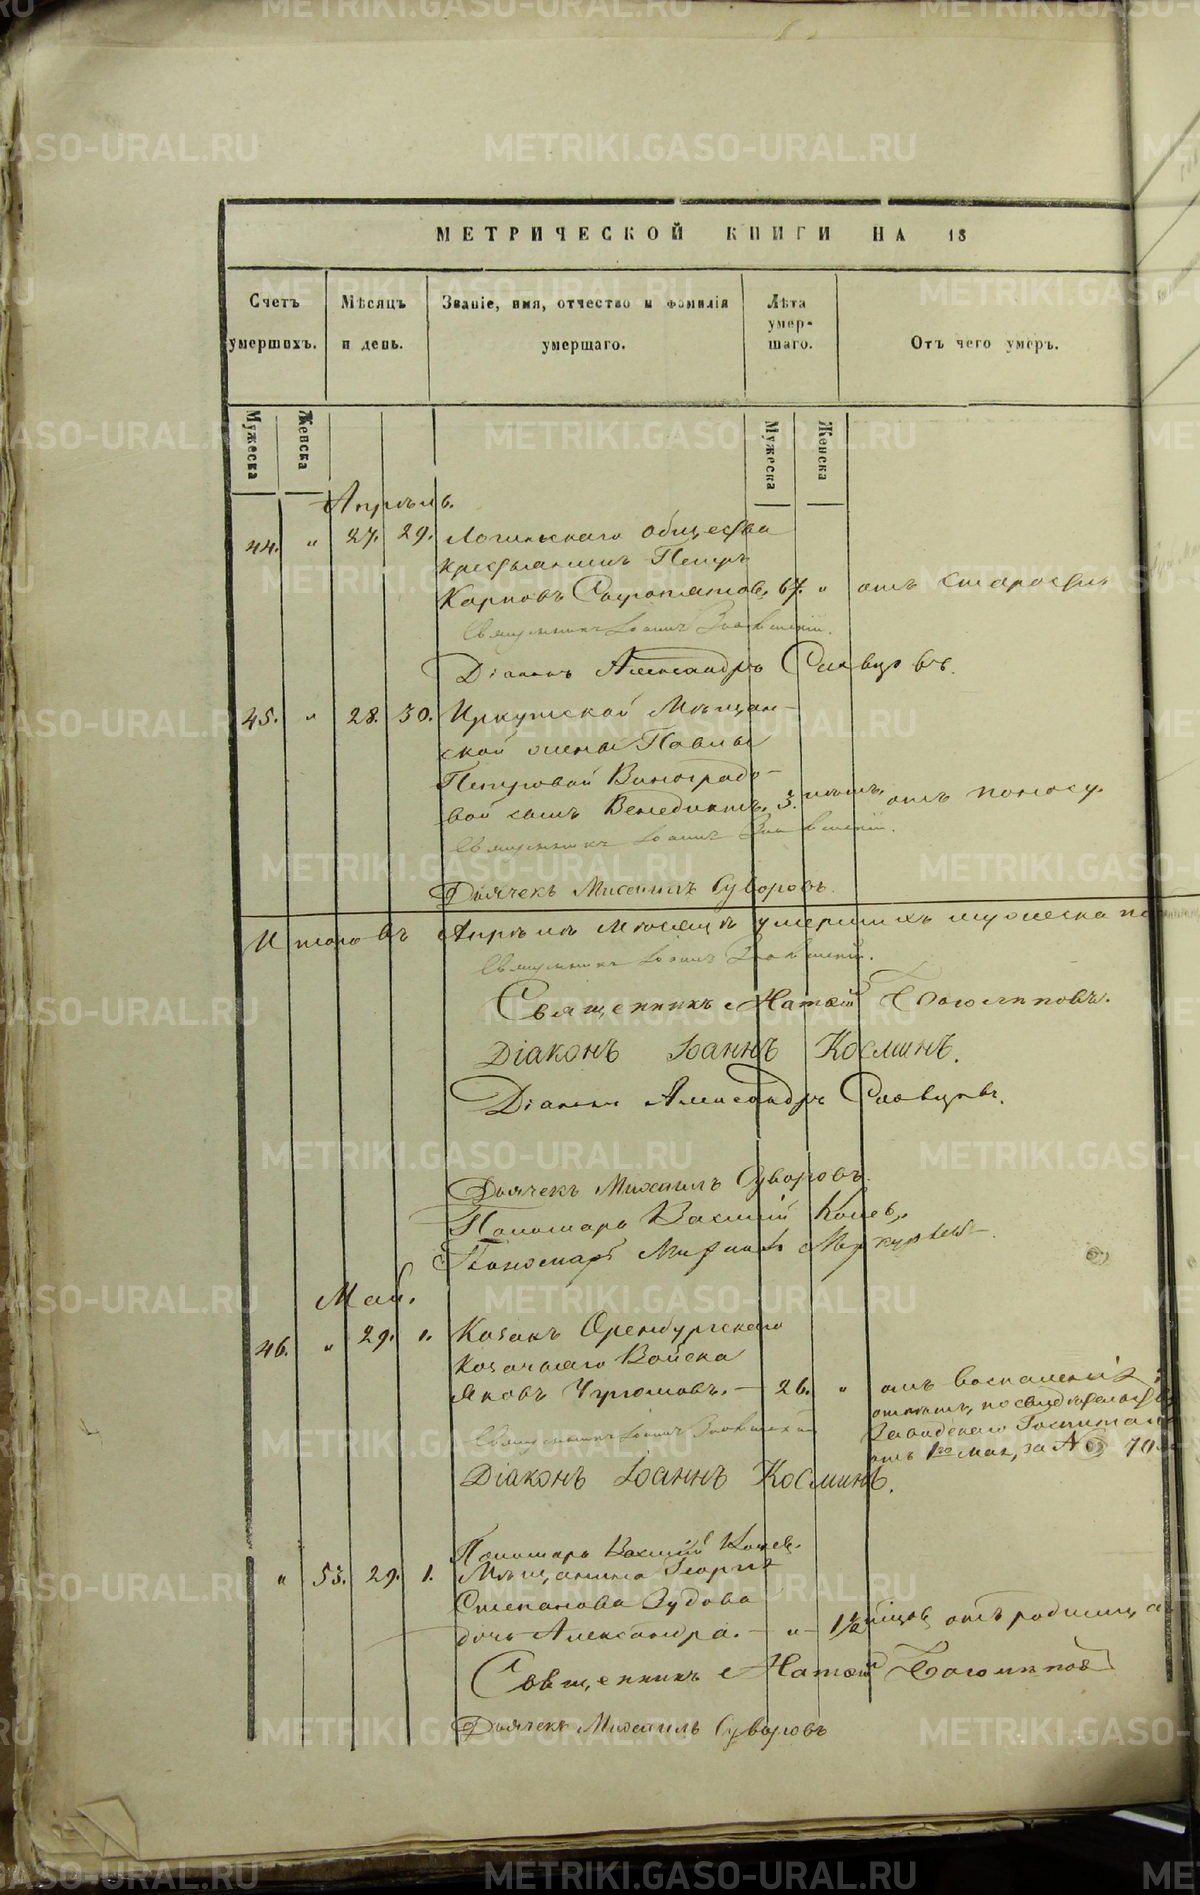 МЕТРИЧЕСКОЙ КНИГИ НА 18
Счетъ умершихъ.
Мѣсяцъ и день.
Званіе, имя, отчество и фамилія умершаго.
Лѣта умер-шаго.
Отъ чего умеръ.
Мужеска
Женска
Мужеска
Женска
Апрѣль.
44. " 27. 29. Логиновскаго общества
крестьянинъ Петръ
Карповъ 67. " отъ старости
Священникъ Іоаннъ
Діаконъ Александръ Словцовъ.
45. " 28. 30. Иркутской Мѣщан-
ской жены Павлы
Петровой Виноградо-
вой сынъ Венедиктъ. 3. отъ поносу.
Священникъ Іоаннъ
Дьячекъ Михаилъ Суворовъ.
Итого въ Апрѣлѣ мѣсяцѣ умершихъ мужеска по
Священникъ Іоаннъ
Священникъ Матѳій Боголѣповъ.
Діаконъ Іоаннъ Косминъ.
Діаконъ Александръ Словцовъ.
Дьячекъ Михаилъ Суворовъ.
Пономарь Василій
Пономарь Меркурьевъ
Май.
46. " 29. 1. Козакъ Оренбургскаго
Козачьяго Войска
Яковъ Чугюмовъ. — 26. " отъ воспаленія
по свидѣтельству
Заводскаго Госпиталя
отъ 1го мая, за № 70
Священникъ Іоаннъ
Діаконъ Іоаннъ Косминъ.
Пономарь Василій
" 53. 29. 1. Мѣщанина Георгія
Степанова Зудова
дочь Александра. — " — 1½ отъ родимца
Священникъ Матѳій Боголѣповъ
Дьячекъ Михаилъ Суворовъ
METRIKI.GASO-URAL.RU